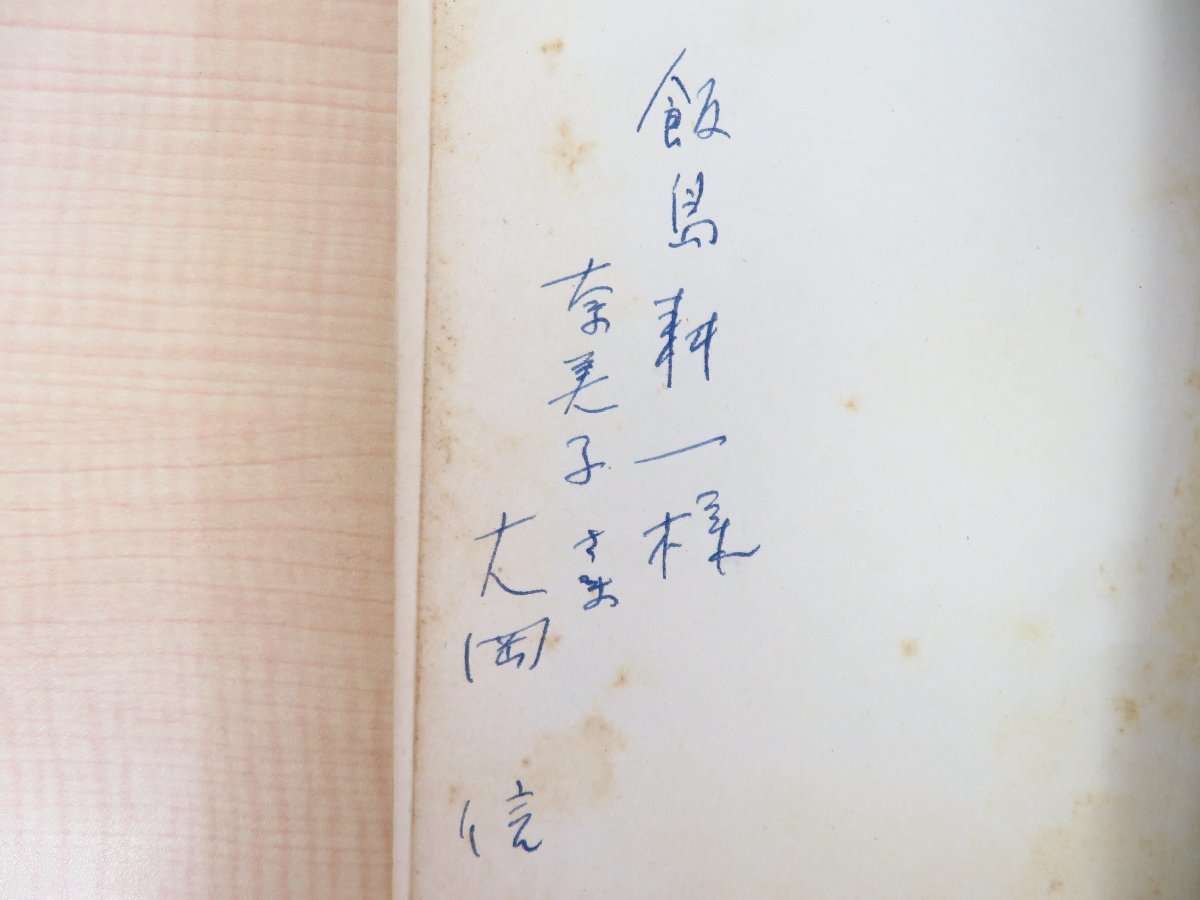 飯島耕一様
奈美子さま
大岡信